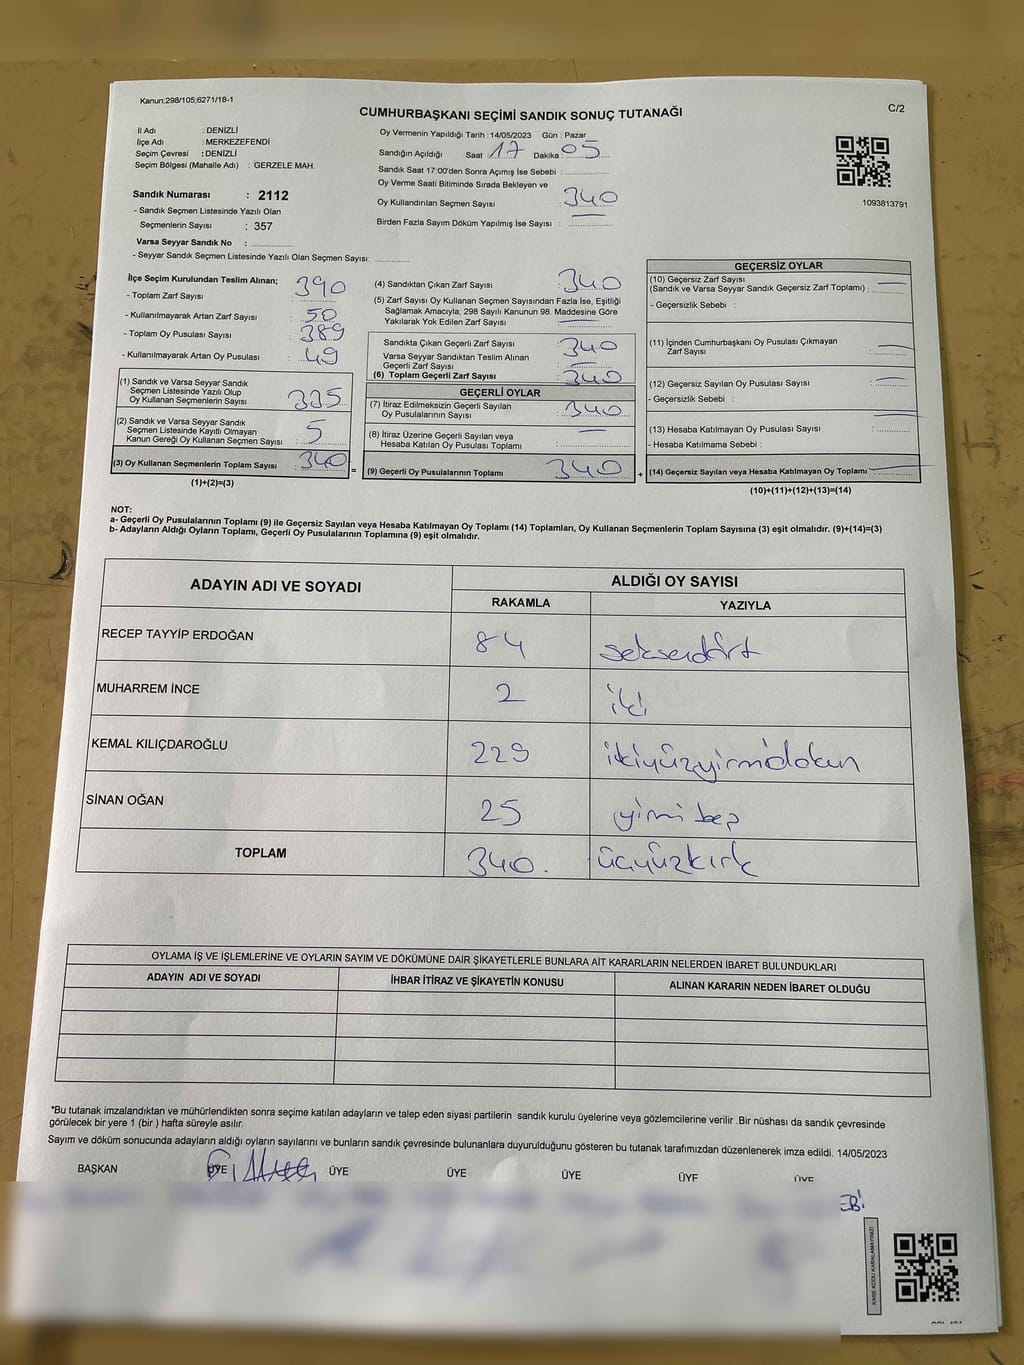 Kanun:298/105;6271/18-1
C/2
CUMHURBAŞKANI SEÇİMİ SANDIK SONUÇ TUTANAĞI
İl Adı : DENİZLİ
İlçe Adı : MERKEZEFENDİ
Seçim Çevresi : DENİZLİ
Seçim Bölgesi (Mahalle Adı) : GERZELE MAH.
Sandık Numarası : 2112
- Sandık Seçmen Listesinde Yazılı Olan
Seçmenlerin Sayısı : 357
Varsa Seyyar Sandık No :
- Seyyar Sandık Seçmen Listesinde Yazılı Olan Seçmen Sayısı:
Oy Vermenin Yapıldığı Tarih : 14/05/2023 Gün : Pazar
Sandığın Açıldığı Saat : 17 Dakika : 05
Sandık Saat 17:00'den Sonra Açımış İse Sebebi :
Oy Verme Saati Bitiminde Sırada Bekleyen ve
Oy Kullandırılan Seçmen Sayısı : 340
Birden Fazla Sayım Döküm Yapılmış İse Sayısı :
1093813791
İlçe Seçim Kurulundan Teslim Alınan;
- Toplam Zarf Sayısı : 390
- Kullanılmayarak Artan Zarf Sayısı : 50
- Toplam Oy Pusulası Sayısı : 389
- Kullanılmayarak Artan Oy Pusulası : 49
(1) Sandık ve Varsa Seyyar Sandık
Seçmen Listesinde Yazılı Olup
Oy Kullanan Seçmenlerin Sayısı : 335
(2) Sandık ve Varsa Seyyar Sandık
Seçmen Listesinde Kayıtlı Olmayan
Kanun Gereği Oy Kullanan Seçmen Sayısı : 5
(3) Oy Kullanan Seçmenlerin Toplam Sayısı : 340
(1)+(2)=(3)
=
(4) Sandıktan Çıkan Zarf Sayısı : 340
(5) Zarf Sayısı Oy Kullanan Seçmen Sayısından Fazla İse, Eşitliği
Sağlamak Amacıyla; 298 Sayılı Kanunun 98. Maddesine Göre
Yakılarak Yok Edilen Zarf Sayısı :
Sandıkta Çıkan Geçerli Zarf Sayısı : 340
Varsa Seyyar Sandıktan Teslim Alınan
Geçerli Zarf Sayısı :
(6) Toplam Geçerli Zarf Sayısı : 340
GEÇERLİ OYLAR
(7) İtiraz Edilmeksizin Geçerli Sayılan
Oy Pusulalarının Sayısı : 340
(8) İtiraz Üzerine Geçerli Sayılan veya
Hesaba Katılan Oy Pusulası Toplamı :
(9) Geçerli Oy Pusulalarının Toplamı : 340
+
GEÇERSİZ OYLAR
(10) Geçersiz Zarf Sayısı
(Sandık ve Varsa Seyyar Sandık Geçersiz Zarf Toplamı) :
- Geçersizlik Sebebi :
(11) İçinden Cumhurbaşkanı Oy Pusulası Çıkmayan
Zarf Sayısı :
(12) Geçersiz Sayılan Oy Pusulası Sayısı :
- Geçersizlik Sebebi :
(13) Hesaba Katılmayan Oy Pusulası Sayısı :
- Hesaba Katılmama Sebebi :
(14) Geçersiz Sayılan veya Hesaba Katılmayan Oy Toplamı :
(10)+(11)+(12)+(13)=(14)
NOT:
a- Geçerli Oy Pusulalarının Toplamı (9) ile Geçersiz Sayılan veya Hesaba Katılmayan Oy Toplamı (14) Toplamları, Oy Kullanan Seçmenlerin Toplam Sayısına (3) eşit olmalıdır. (9)+(14)=(3)
b- Adayların Aldığı Oyların Toplamı, Geçerli Oy Pusulalarının Toplamına (9) eşit olmalıdır.
ADAYIN ADI VE SOYADI ALDIĞI OY SAYISI
RAKAMLA YAZIYLA
RECEP TAYYİP ERDOĞAN 84 seksendört
MUHARREM İNCE 2 iki
KEMAL KILIÇDAROĞLU 229 ikiyüzyirmidokun
SİNAN OĞAN 25 yirmi beş
TOPLAM 340. üçyüzkırk
OYLAMA İŞ VE İŞLEMLERİNE VE OYLARIN SAYIM VE DÖKÜMÜNE DAİR ŞİKAYETLERLE BUNLARA AİT KARARLARIN NELERDEN İBARET BULUNDUKLARI
ADAYIN ADI VE SOYADI İHBAR İTİRAZ VE ŞİKAYETİN KONUSU ALINAN KARARIN NEDEN İBARET OLDUĞU
*Bu tutanak imzalandıktan ve mühürlendikten sonra seçime katılan adayların ve talep eden siyasi partilerin sandık kurulu üyelerine veya gözlemcilerine verilir .Bir nüshası da sandık çevresinde
görülecek bir yere 1 (bir ) hafta süreyle asılır.
Sayım ve döküm sonucunda adayların aldığı oyların sayılarını ve bunların sandık çevresinde bulunanlara duyurulduğunu gösteren bu tutanak tarafımızdan düzenlenerek imza edildi. 14/05/2023
BAŞKAN ÜYE ÜYE ÜYE ÜYE ÜYE ÜYE
KARE KODU KARALAMAYINIZ!